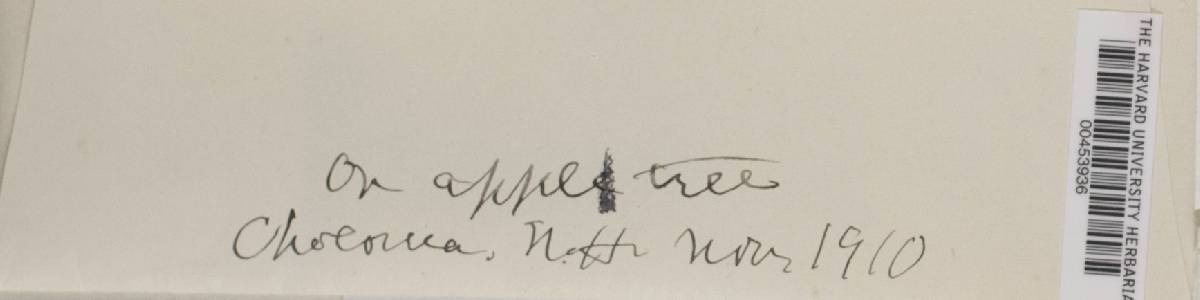 On apple trees
Chocorua. N.H. Nov. 1910
THE HARVARD UNIVERSITY HERBARIA
00453936